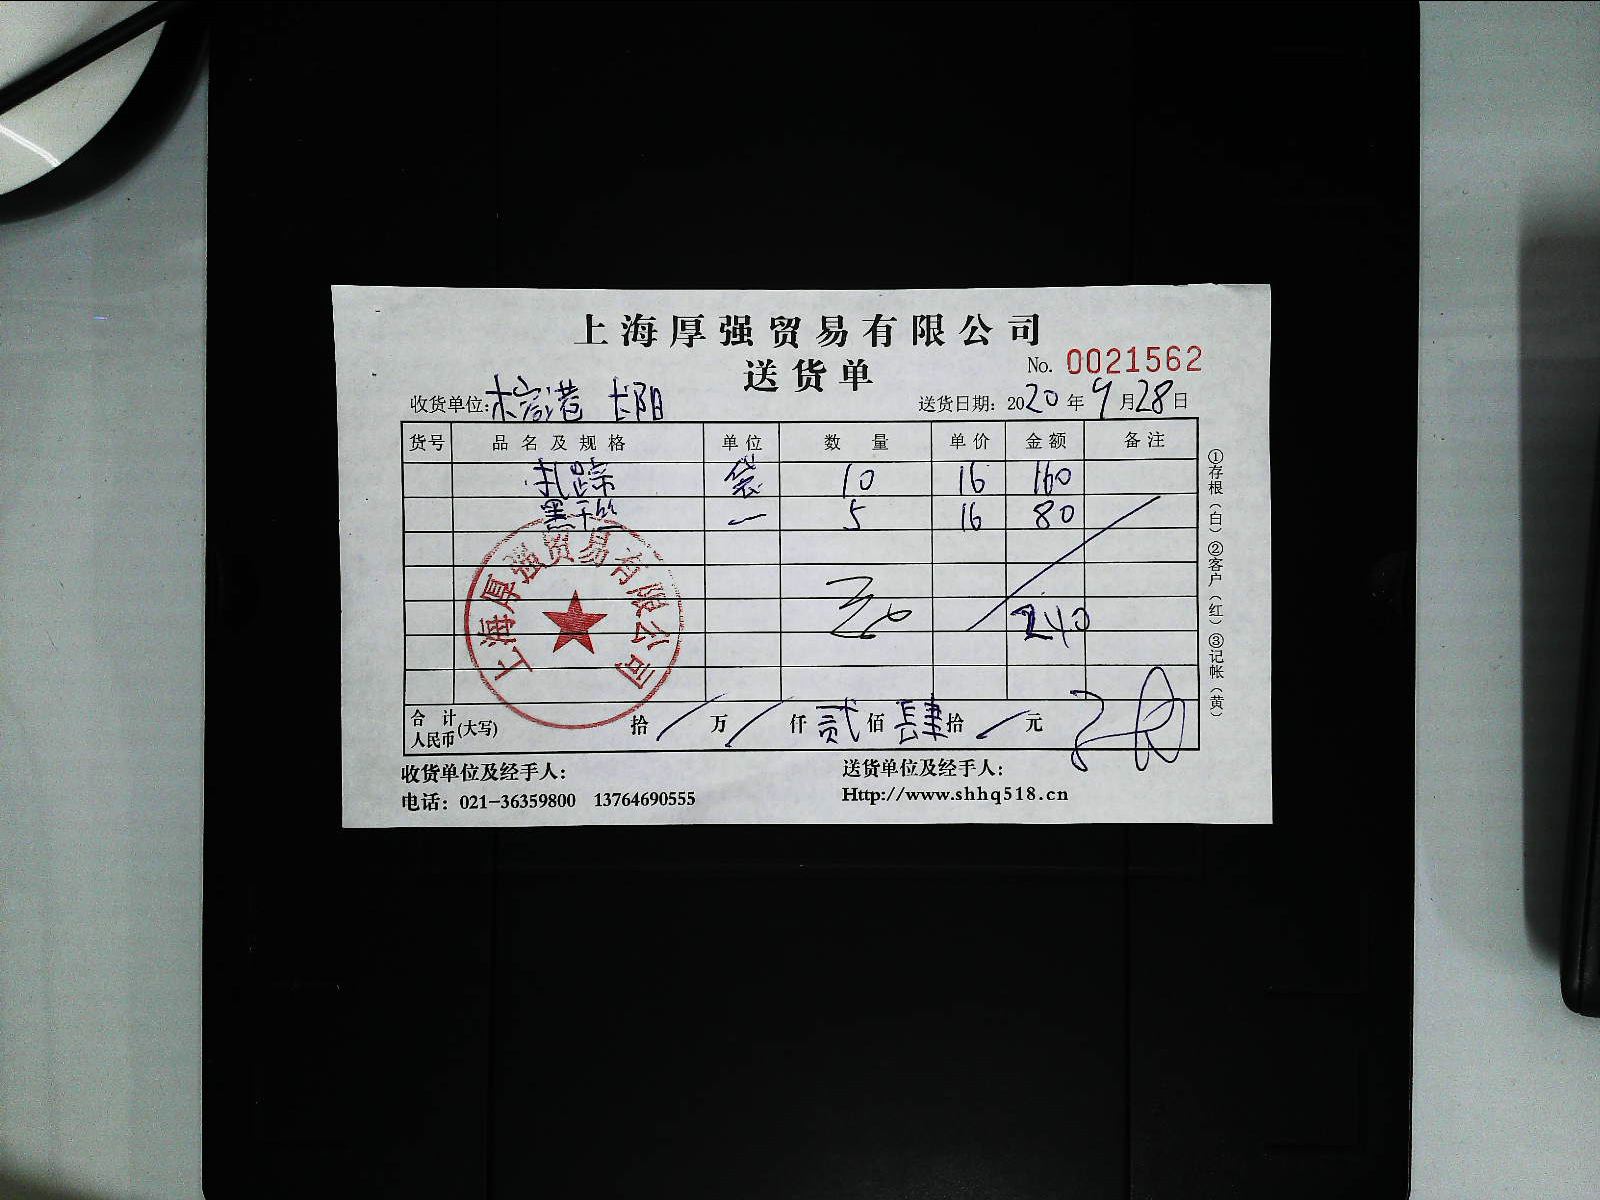 上海厚强贸易有限公司
送货单
No. 0021562
收货单位: 长阳
送货日期: 2020年9月28日
货号 品名及规格 单位 数量 单价 金额 备注
扎蹄 袋 10 16 160
黑干丝 5 16 80
240
上海厚强贸易有限公司
合计人民币(大写) 拾 万 仟 贰佰 肆拾 元
收货单位及经手人:
送货单位及经手人:
电话: 021-36359800 13764690555
Http://www.shhq518.cn
①存根(白)②客户(红)③记帐(黄)